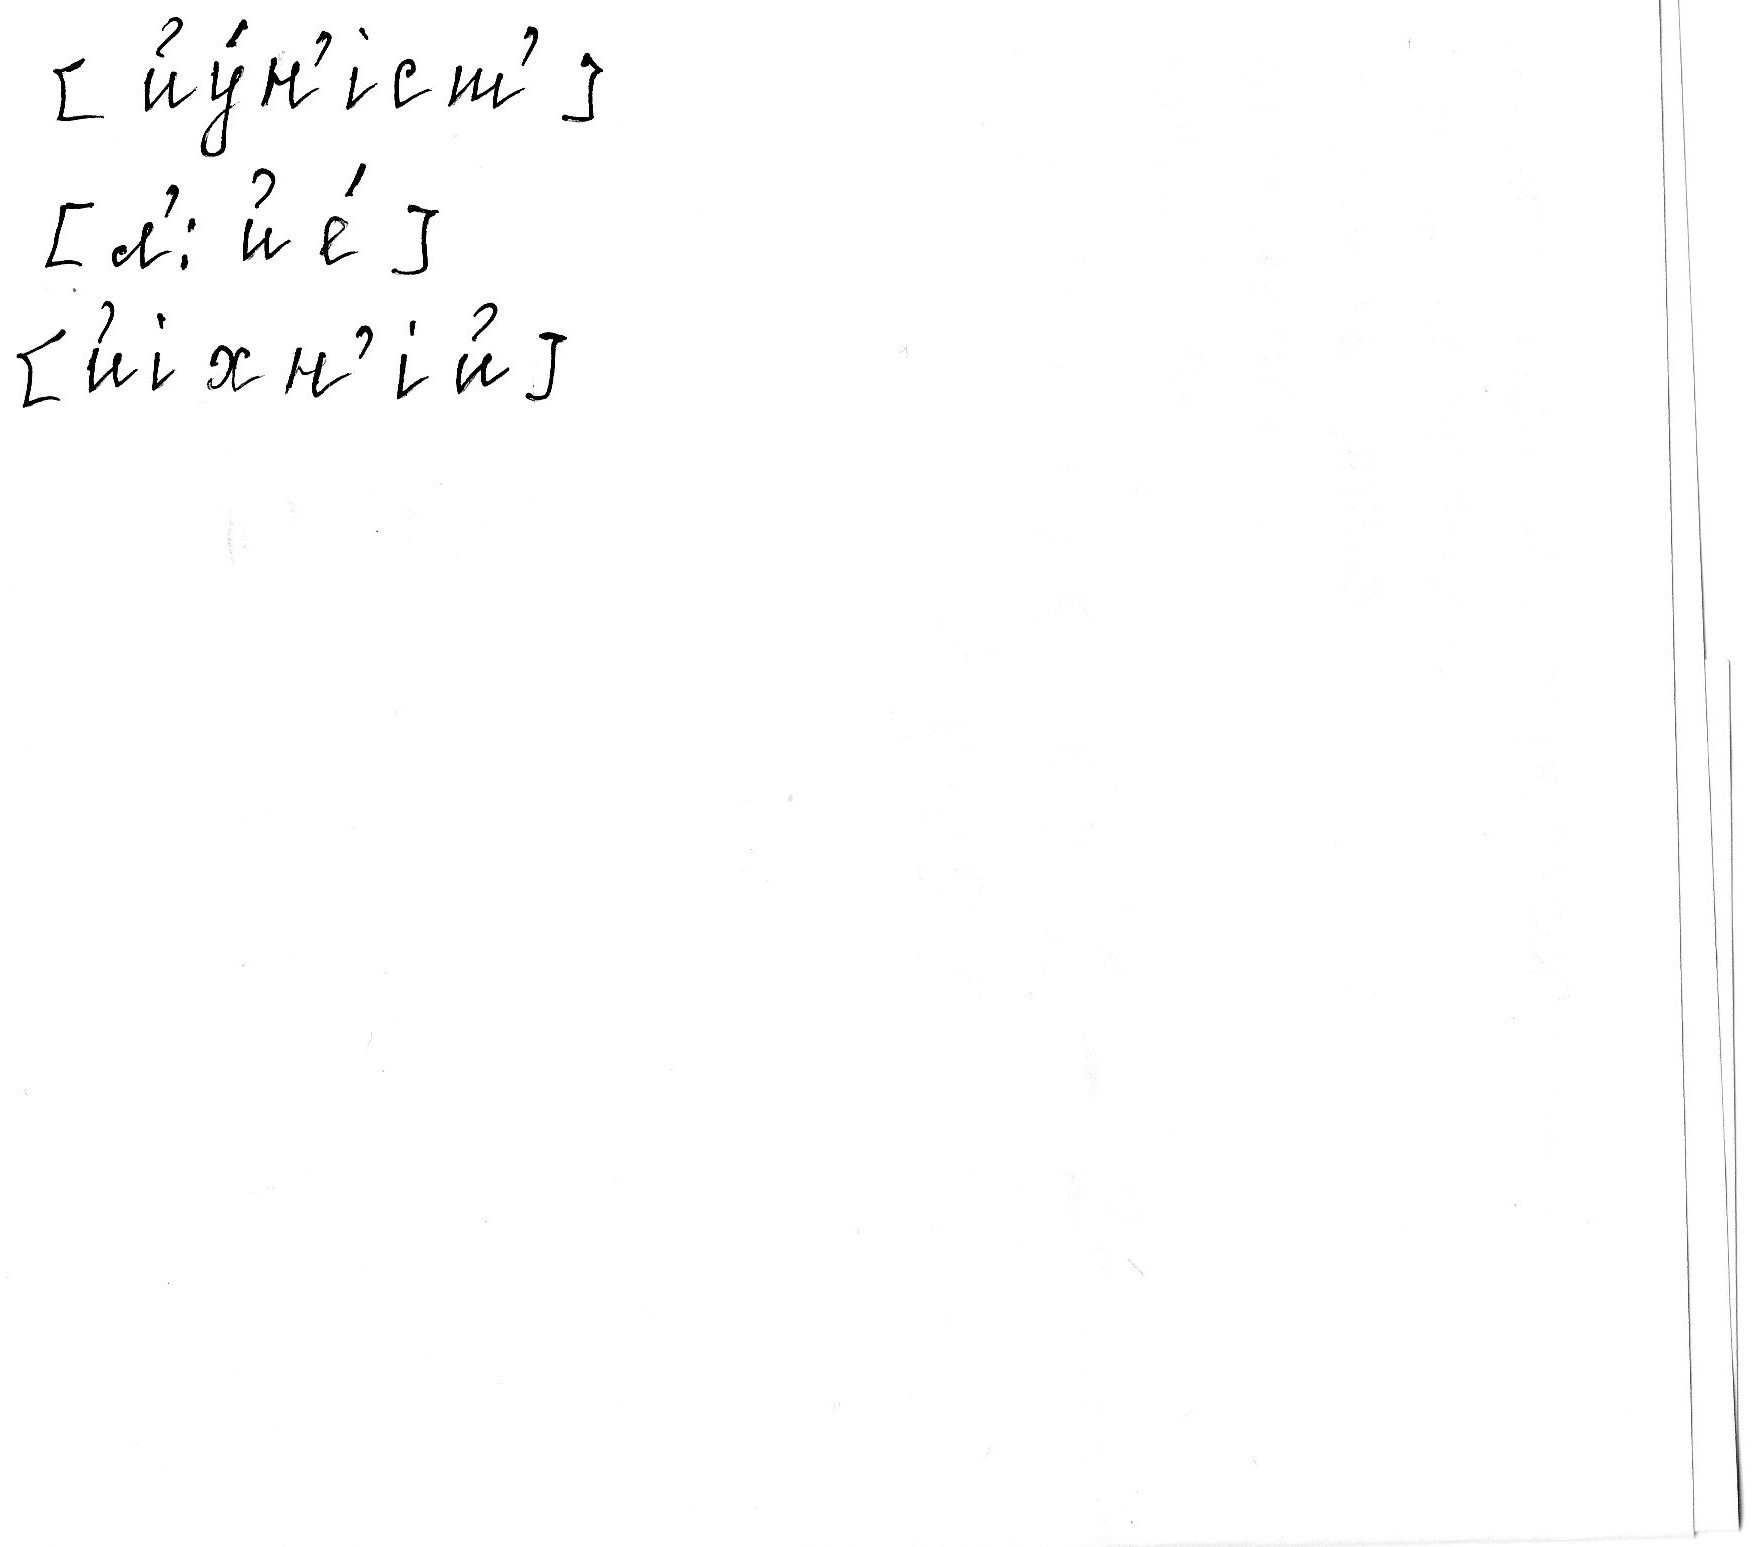 [йу́н'іст']
[л':йе́]
[йіхн'ій]